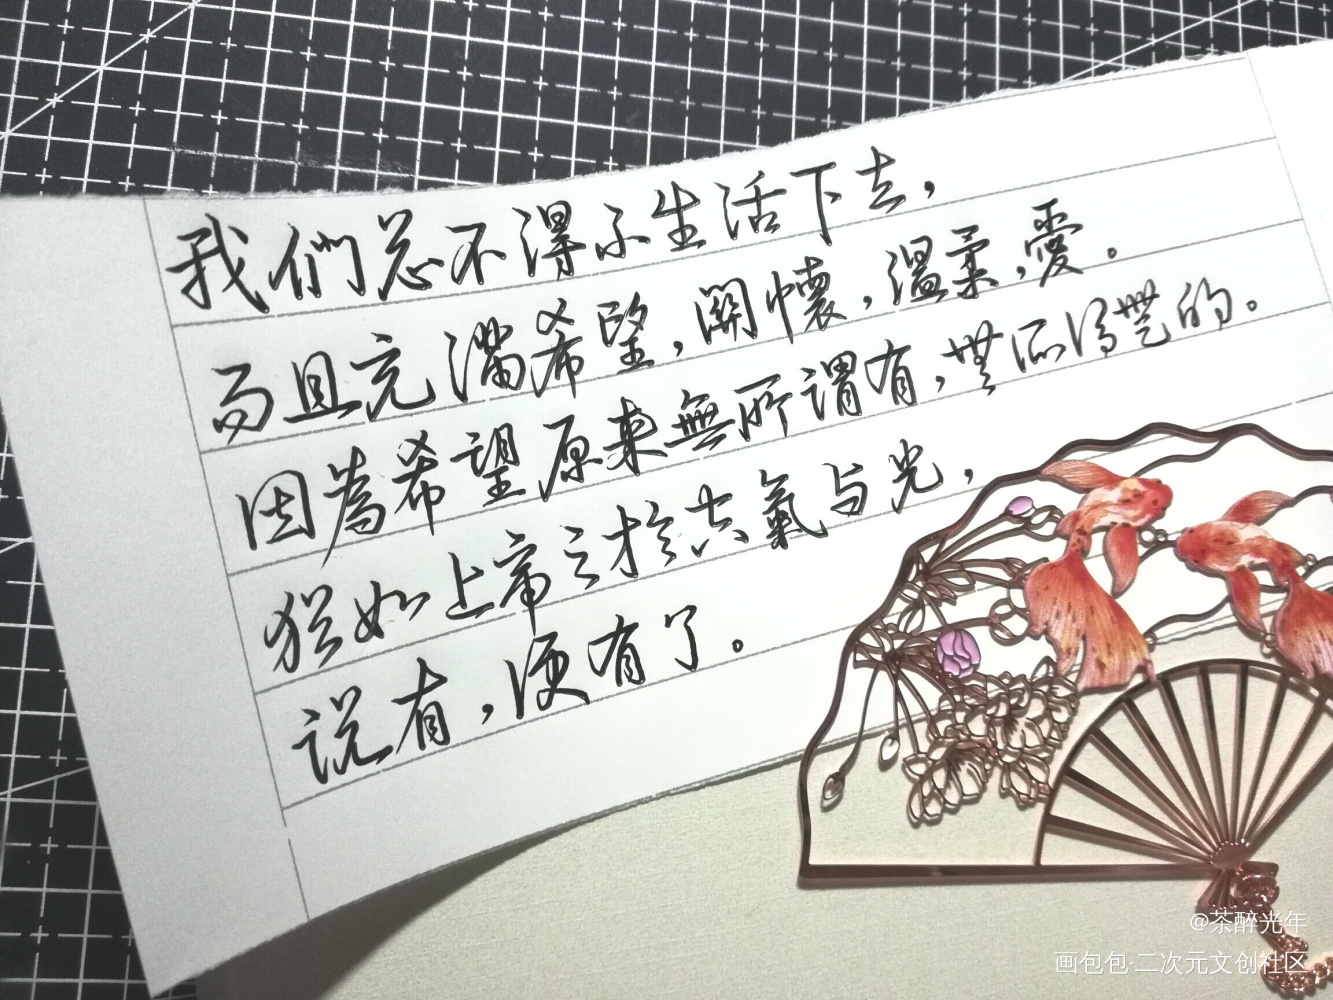 我們总不得不生活下去，
而且充滿希望，關懷，溫柔，愛。
因為希望原来無所謂有，無所謂無的。
猶如上帝之於空氣与光，
说有，便有了。
@茶醉光年
画包包·二次元文创社区